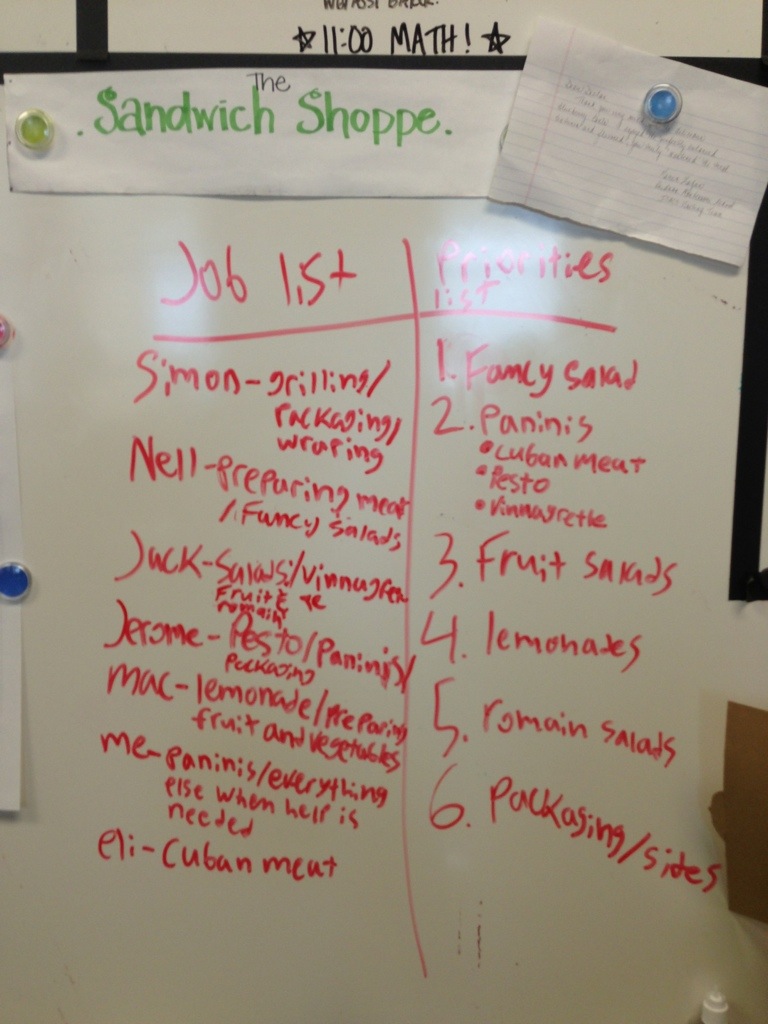 ☆ 11:00 MATH! ☆
The
. Sandwich Shoppe.
Job list
Simon-grilling/
packaging/
wraping
Nell-preparing meat
/Fancy salads
Jack-salads/vinnagrette
Fruit &
romain
Jerome- Pesto/paninis/
packaging
mac-lemonade/preparing
fruit and vegetables
me-paninis/everything
else when help is
needed
eli-Cuban meat
Priorities
list
1. Fancy salad
2. Paninis
•Cuban meat
•Pesto
•Vinnagrette
3. Fruit salads
4. lemonades
5. romain salads
6. packaging/sides